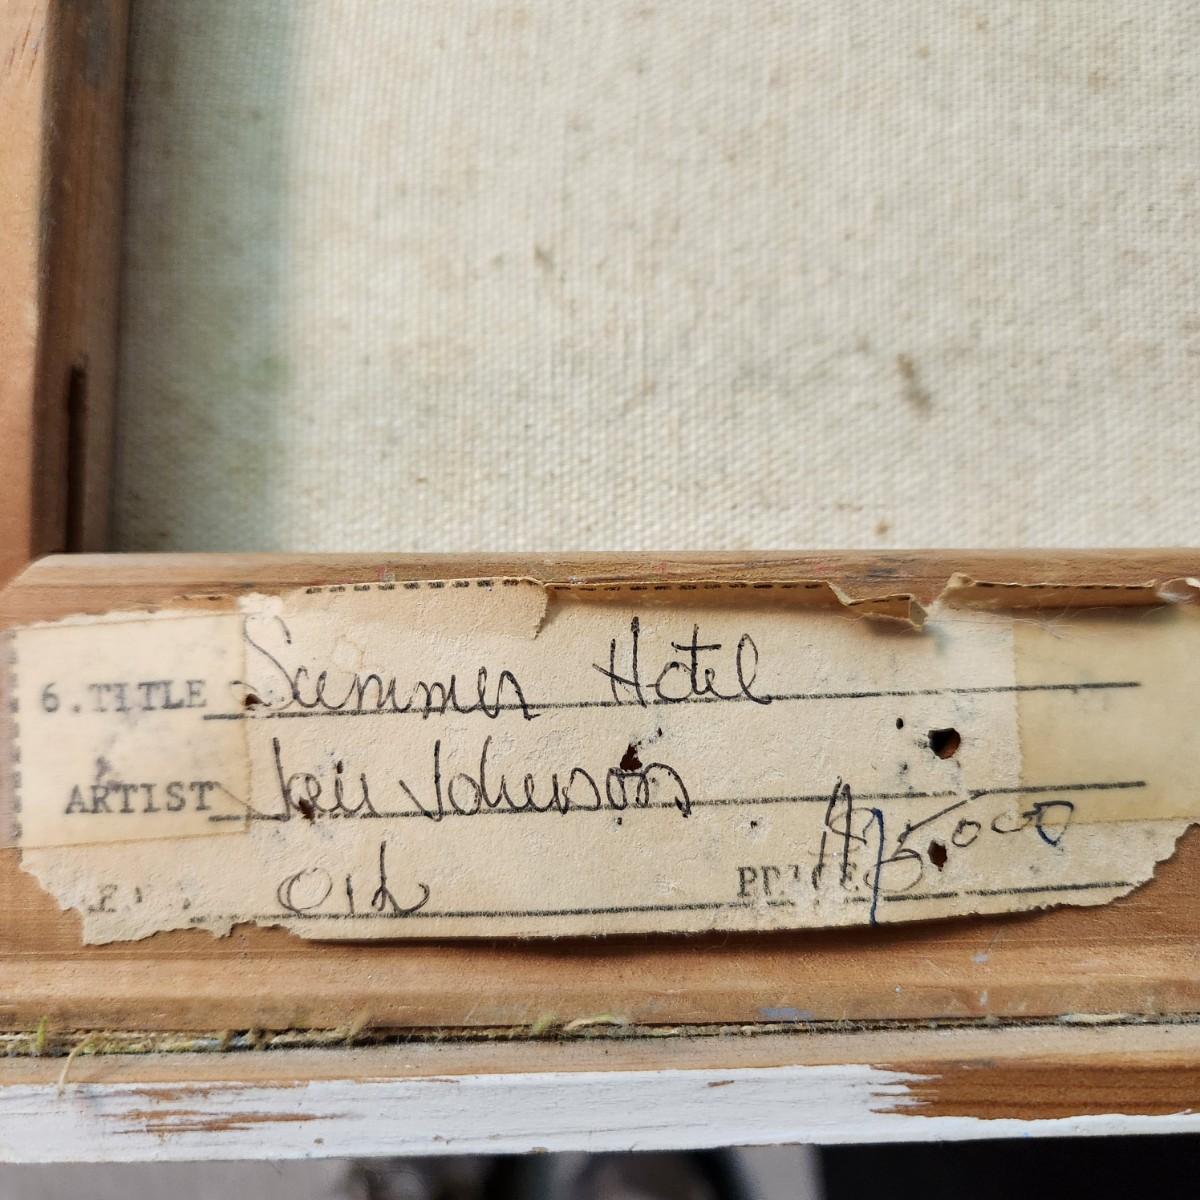 6.TITLE Summer Hotel
ARTIST Johnson
OIL PRICE